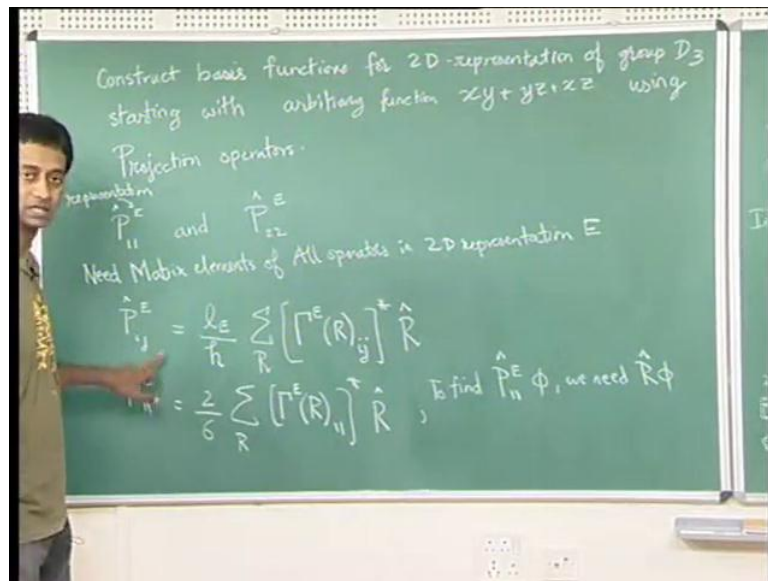 Construct basis functions for 2D-representation of group D₃
starting with arbitrary function xy + yz + xz using
Projection operators.
representation
P̂₁₁ᴱ and P̂₂₂ᴱ
Need Matrix elements of All operators in 2D representation E
P̂ᵢⱼᴱ = l_E/h Σ_R [Γᴱ(R)ᵢⱼ]* R̂
= 2/6 Σ_R [Γᴱ(R)₁₁]* R̂ , To find P̂₁₁ᴱ ϕ, we need R̂ϕ